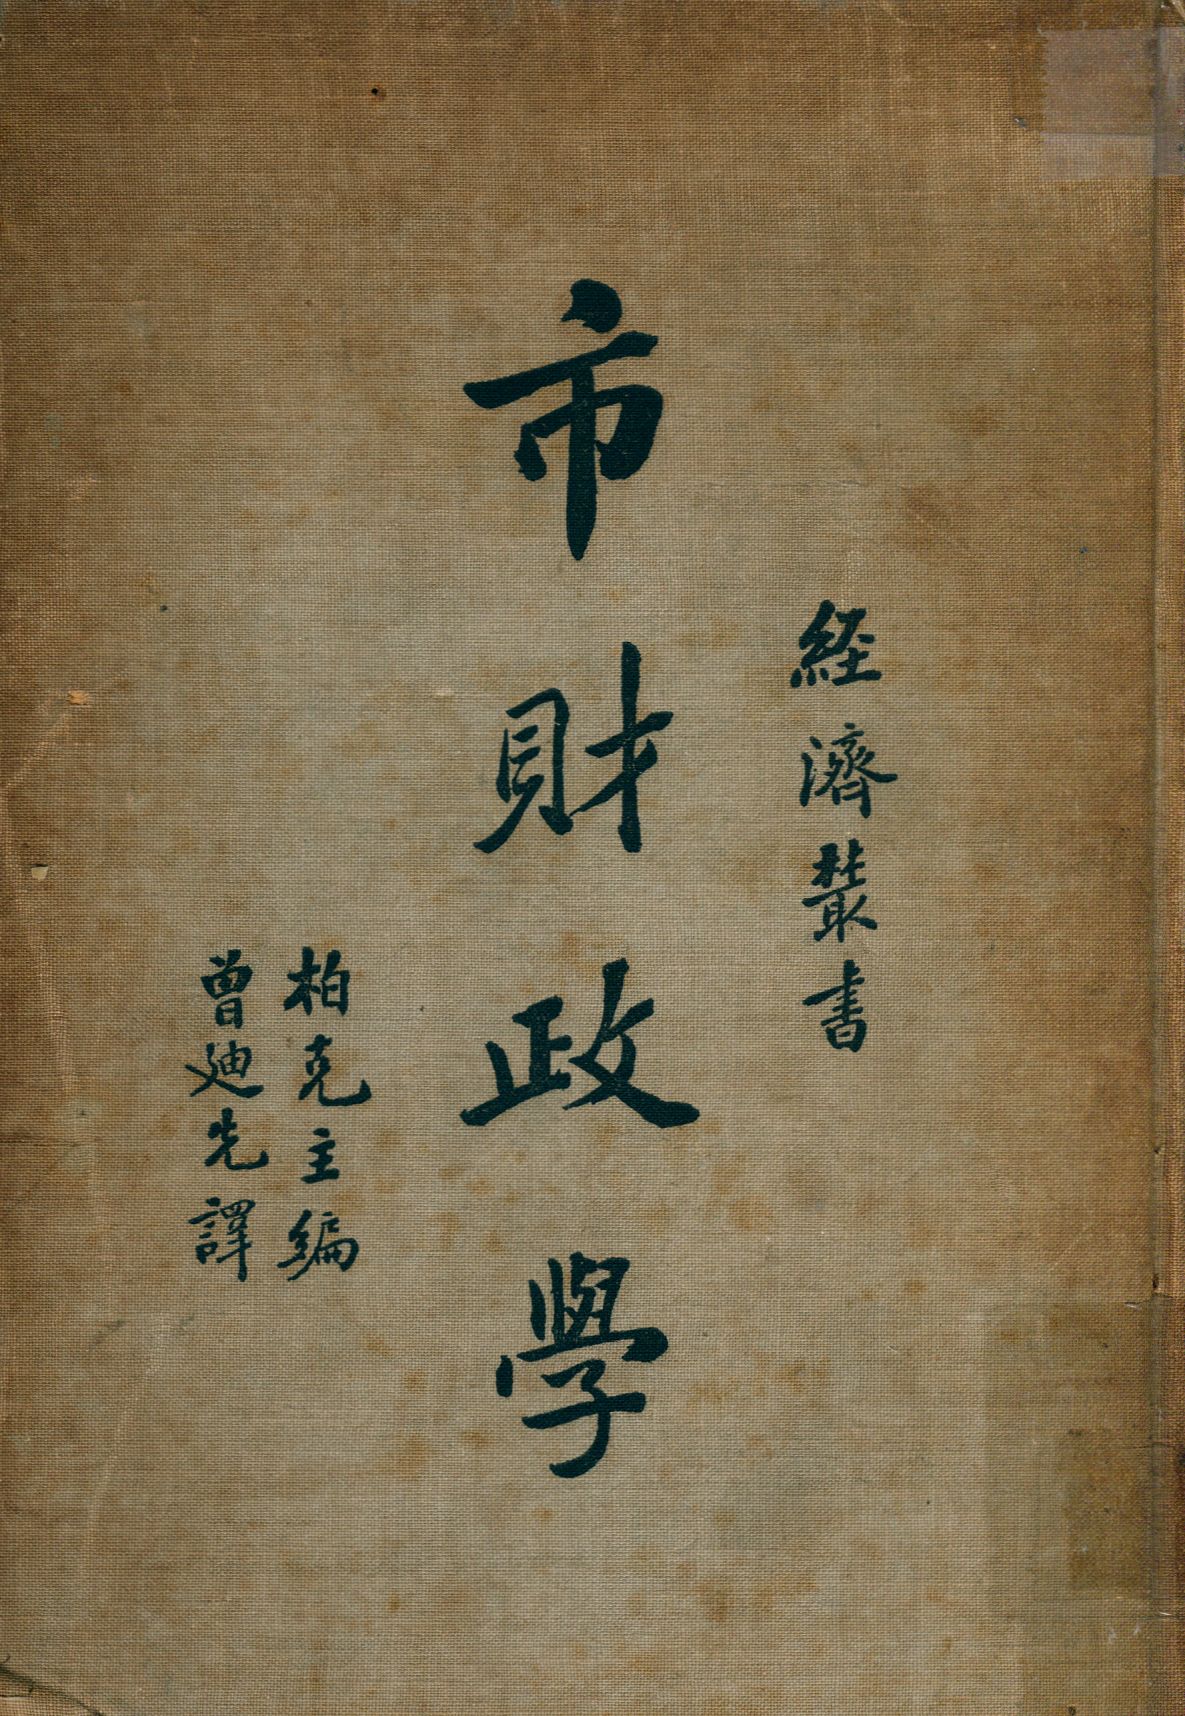 経濟叢書
市財政學
柏克主編
曾廸先譯